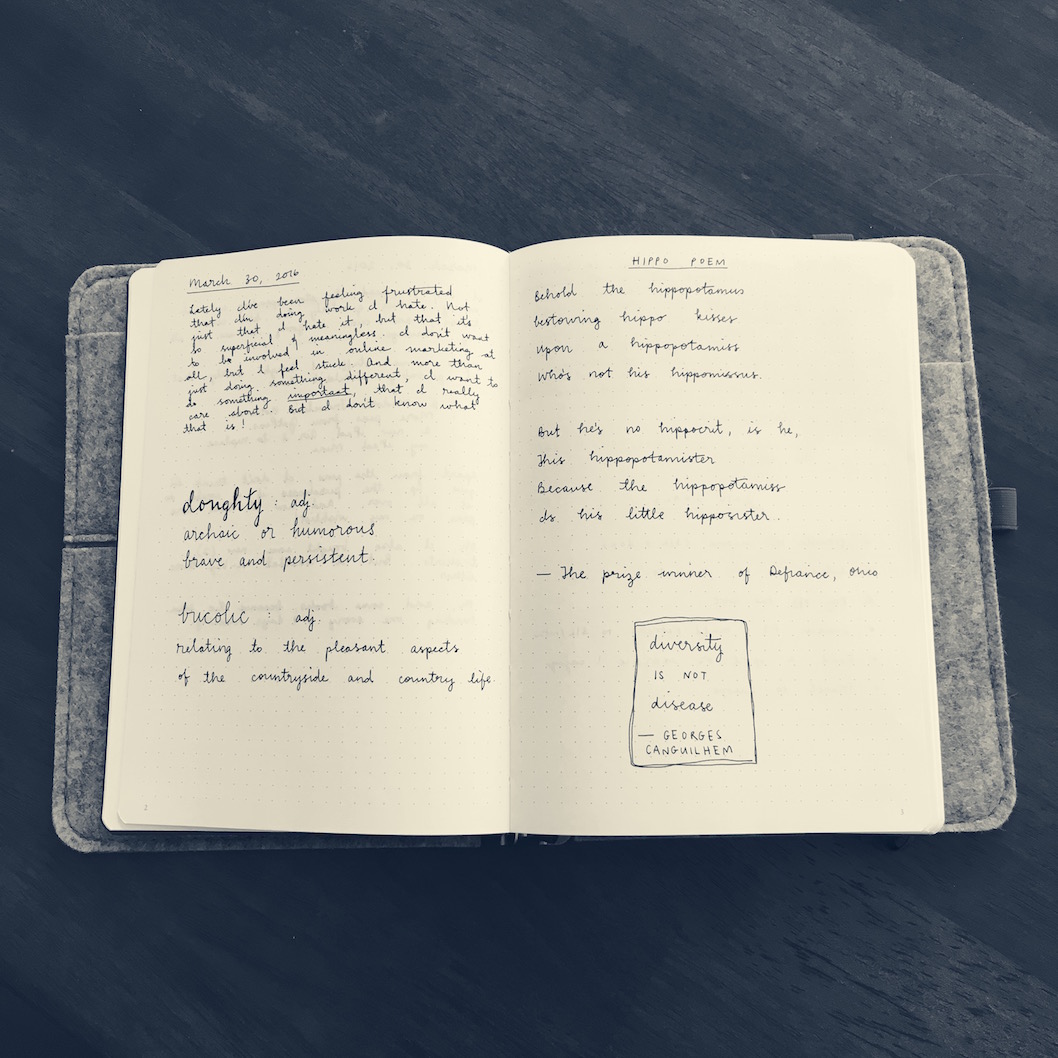 March 30, 2016
Lately I've been feeling frustrated
that I'm doing work I hate. Not
just that I hate it, but that it's
so superficial & meaningless. I don't want
to be involved in online marketing at
all, but I feel stuck. And more than
just doing something different, I want to
do something important, that I really
care about. But I don't know what
that is!
doughty : adj.
archaic or humorous
brave and persistent.
bucolic : adj.
relating to the pleasant aspects
of the countryside and country life.
2
HIPPO POEM
Behold the hippopotamus
bestowing hippo kisses
upon a hippopotamiss
Who's not his hippomissus.
But he's no hippocrit, is he,
This hippopotamister
Because the hippopotamiss
Is his little hipposister.
— The prize winner of Defiance, Ohio
diversity
IS NOT
disease
— GEORGES
CANGUILHEM